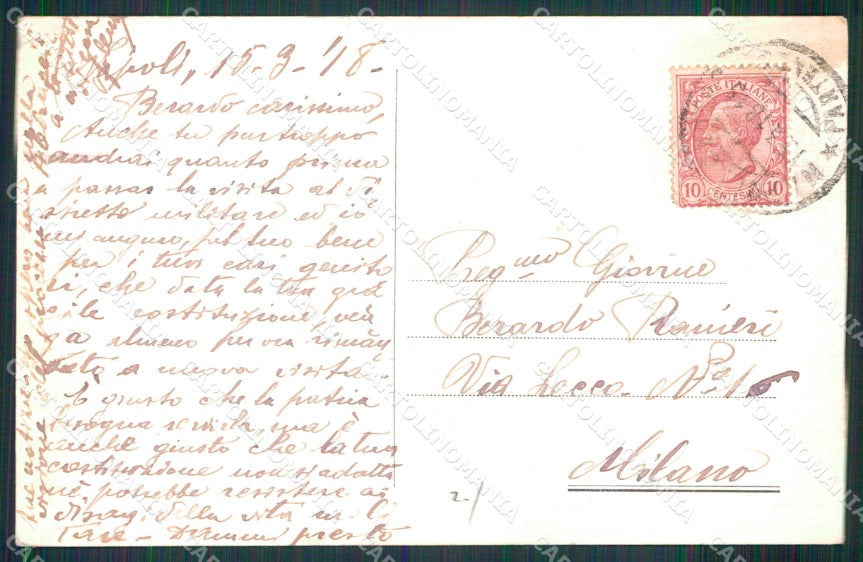 Napoli, 15-3-'18-
Berardo carissimo,
Anche tu purtroppo
andrai quanto prima
a passar la visita al Di
stretto militare ed io
mi auguro, pel tuo bene
per i tuoi cari genito
ri, che data la tua gra
cile costituzione, ven
ga almeno per ora riman
dato a nuova visita.
È giusto che la patria
bisogna servirla, ma è
anche giusto che la tua
costituzione non si adatta
nè potrebbe resistere ai
disagi della vita mili
tare - Dammi presto
POSTE ITALIANE
10 CENTESIMI 10
PARTENZA
Preg.mo Giovine
Berardo Ranieri
Via Lecco N° 16
Milano
2-/
CARTOLINOMANIA